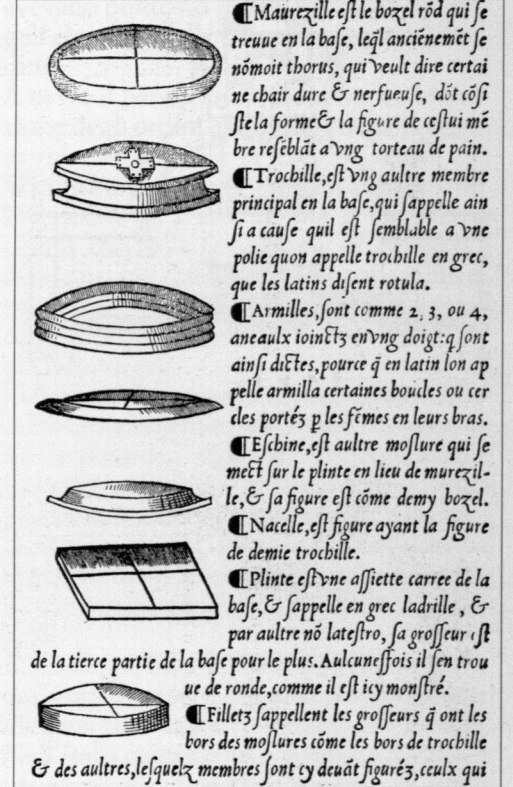 ⁋Maurezille eſt le bozel rõd qui ſe
treuue en la baſe, leq̃l anciẽnemẽt ſe
nõmoit thorus, qui veult dire certai
ne chair dure & nerfueuſe, dõt cõſi
ſte la forme & la figure de ceſtui mẽ
bre reſẽblãt a vng torteau de pain.
⁋Trochille, eſt vng aultre membre
principal en la baſe, qui ſappelle ain
ſi a cauſe quil eſt ſemblable a vne
polie quon appelle trochille en grec,
que les latins diſent rotula.
⁋Armilles, ſont comme 2, 3, ou 4,
aneaulx ioinctz en vng doigt: q̃ ſont
ainſi dictes, pource q̃ en latin lon ap
pelle armilla certaines boucles ou cer
cles portéz ꝑ les fẽmes en leurs bras.
⁋Eſchine, eſt aultre moſlure qui ſe
mect ſur le plinte en lieu de murezil-
le, & ſa figure eſt cõme demy bozel.
⁋Nacelle, eſt figure ayant la figure
de demie trochille.
⁋Plinte eſt vne aſſiette carree de la
baſe, & ſappelle en grec ladrille, &
par aultre nõ lateſtro, ſa groſſeur eſt
de la tierce partie de la baſe pour le plus. Aulcuneſfois il ſen trou
ue de ronde, comme il eſt icy monſtré.
⁋Filletz ſappellent les groſſeurs q̃ ont les
bors des moſlures cõme les bors de trochille
& des aultres, leſquelz membres ſont cy deuãt figuréz, ceulx qui